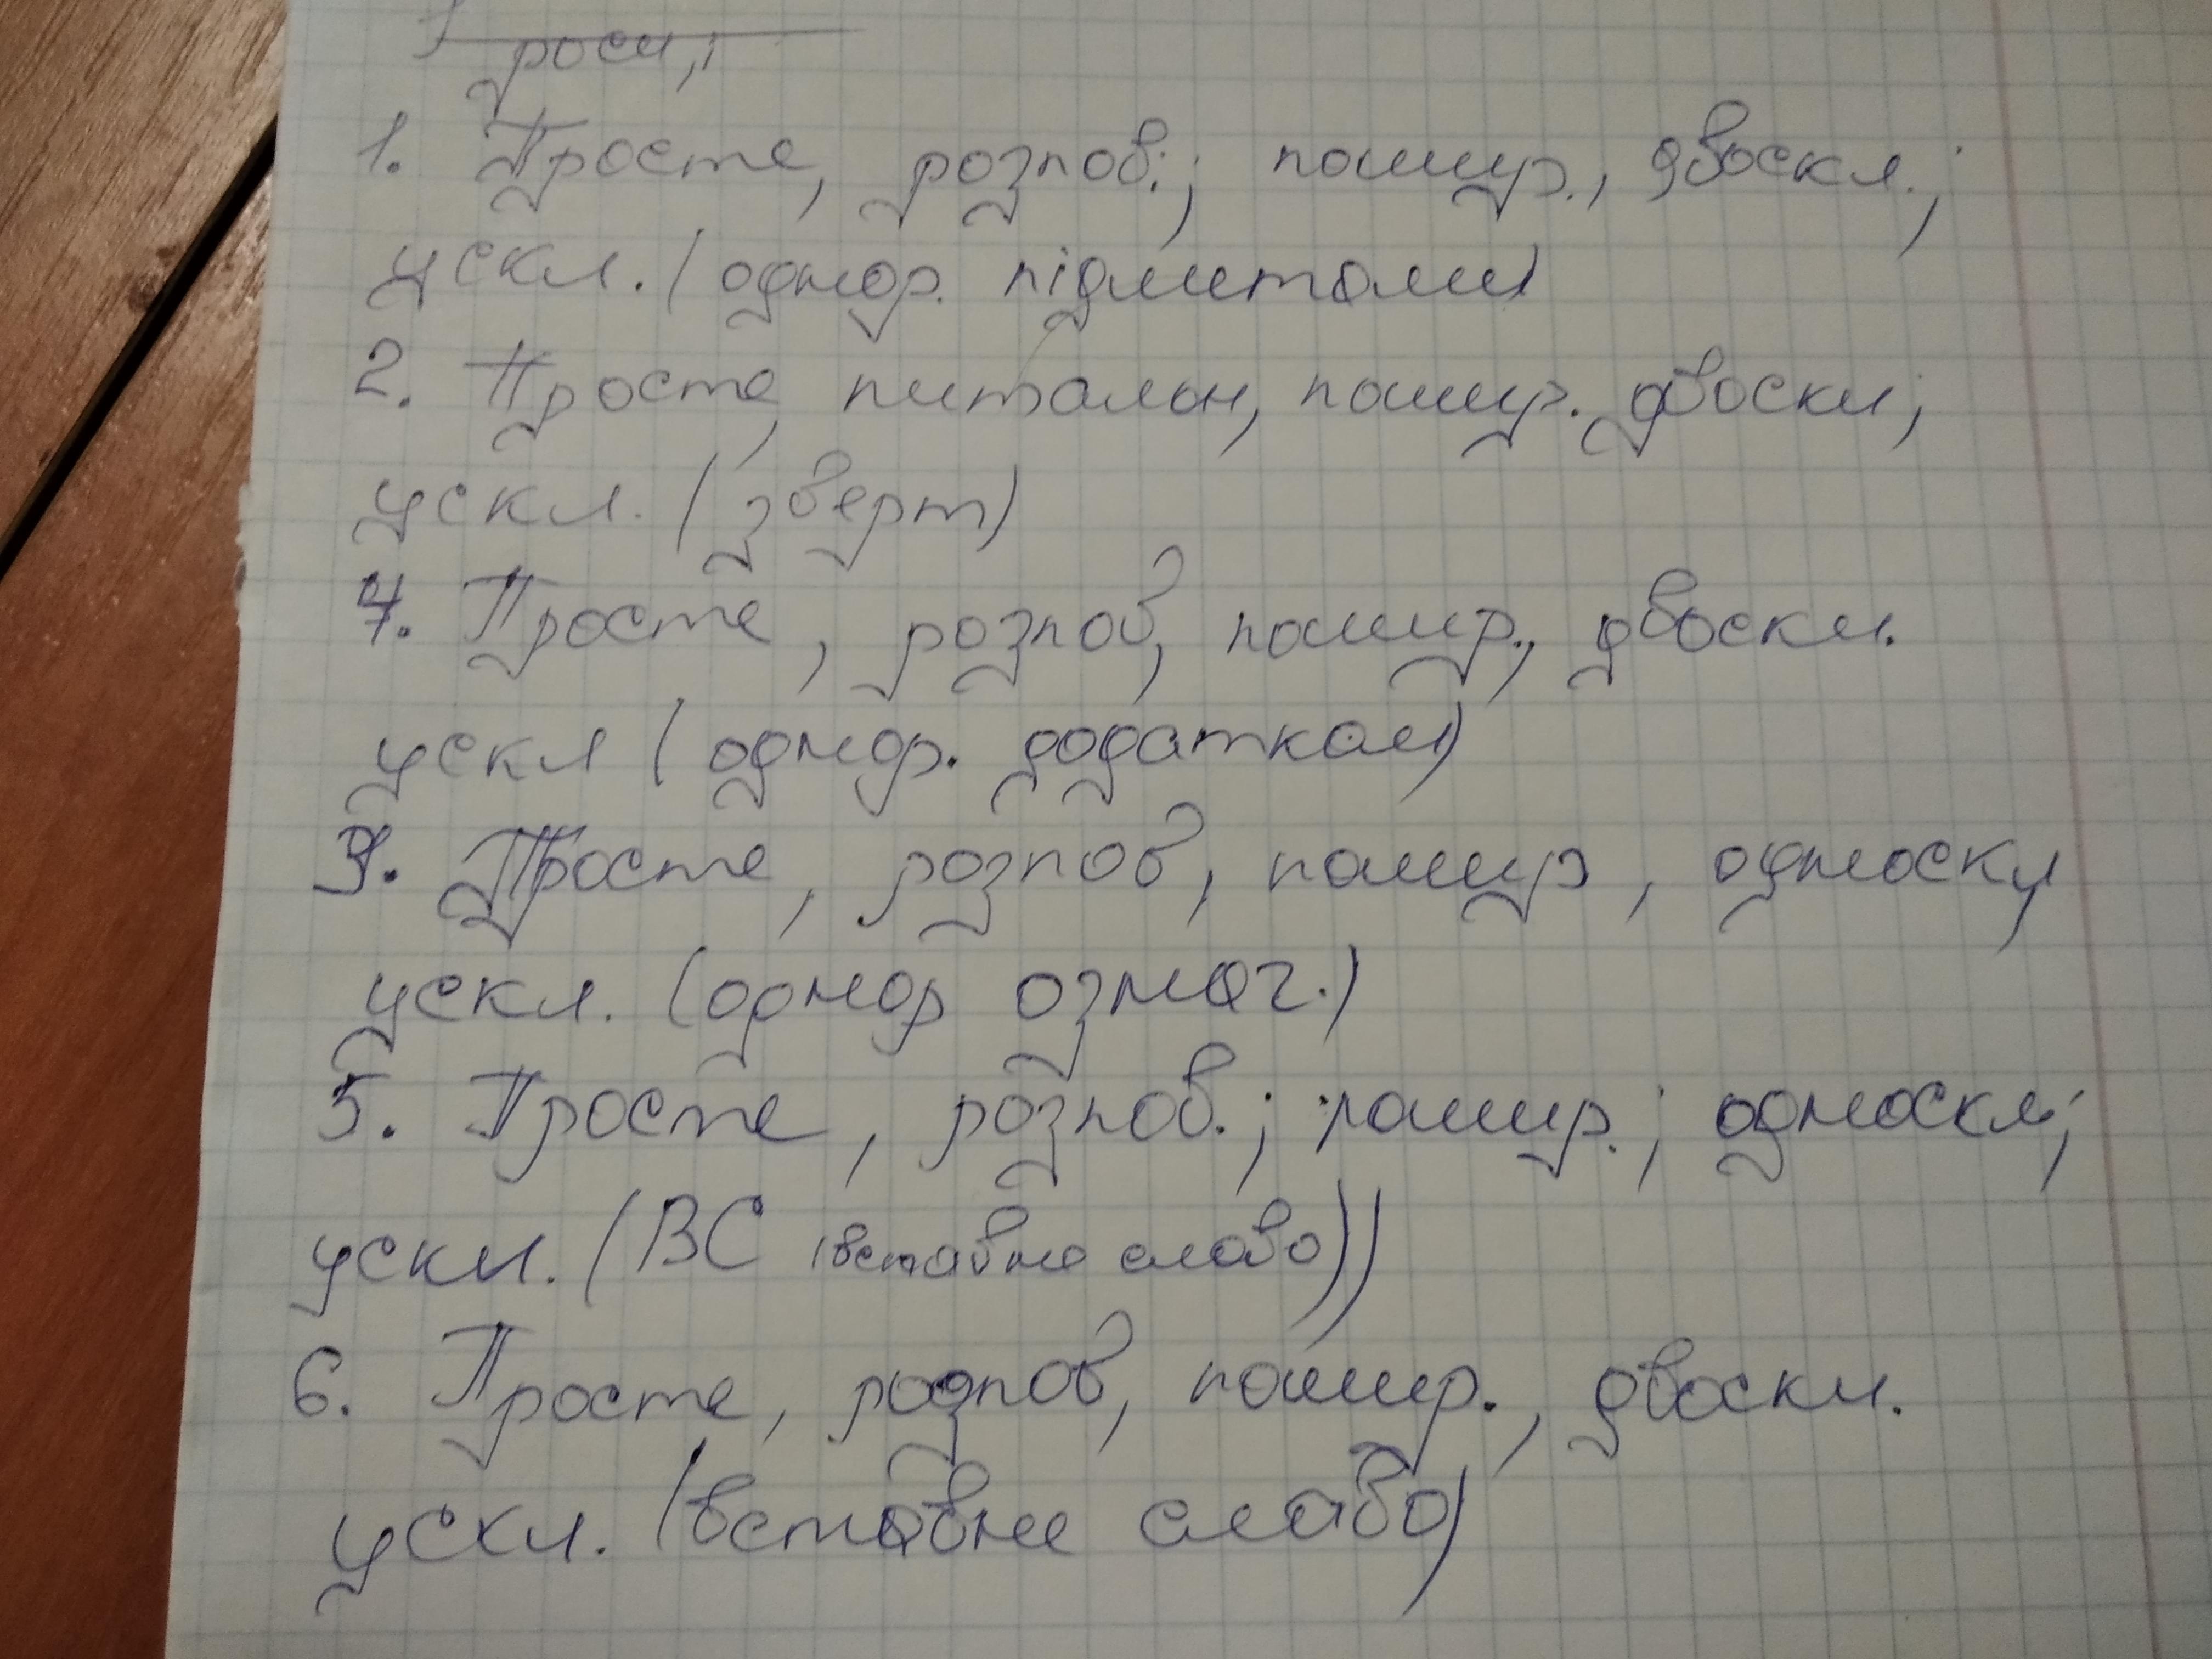 роси,;
1. Просте, розпов.; пошир., двоскл.;
ускл. (однор. підметами)
2. Просте, питальн, пошир. двоскл;
ускл. (зверт)
4. Просте, розпов, пошир., двоскл.
ускл (однор. додатками)
3. Просте, розпов, пошир, односкл,
ускл. (однор означ.)
5. Просте, розпов.; пошир.; односкл;
ускл. (ВС (вставне слово))
6. Просте, розпов, пошир., двоскл.
ускл. (вставне слово)